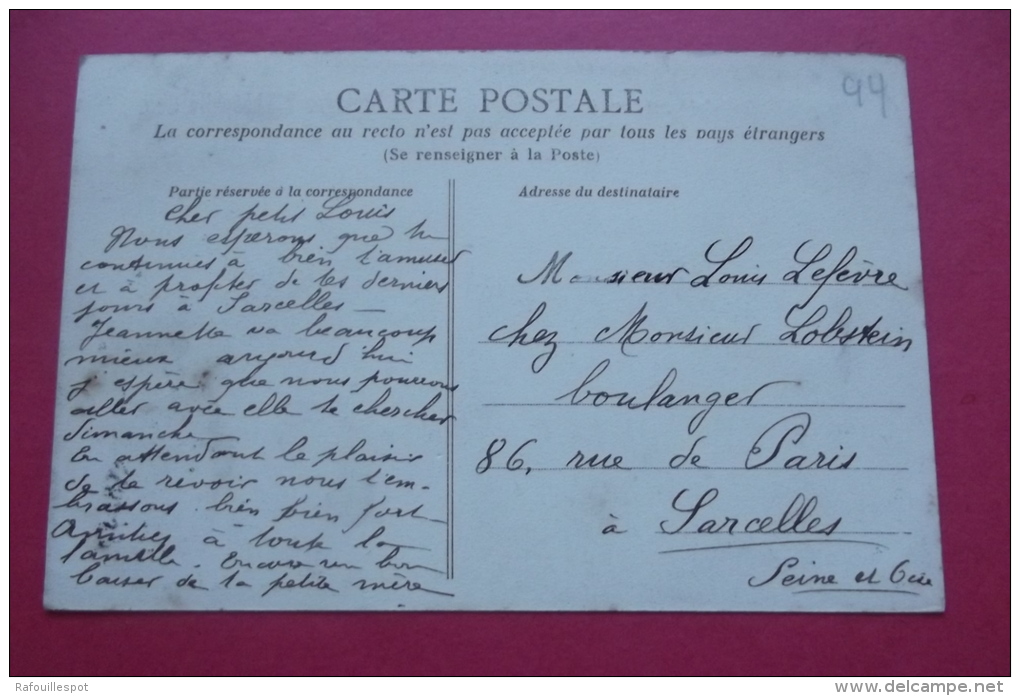 94
CARTE POSTALE
La correspondance au recto n'est pas acceptée par tous les pays étrangers
(Se renseigner à la Poste)
Partie réservée à la correspondance
Cher petit Louis
Nous esperons que tu
continues à bien t'amuser
et à profiter de tes derniers
jours à Sarcelles —
Jeannette va beaucoup
mieux aujourd'hui
j'espère que nous pourrons
aller avec elle te chercher
dimanche
En attendant le plaisir
de te revoir nous t'em-
brassons bien bien fort
Amitiés à toute la
famille. Encore un bon
baiser de ta petite mère
Adresse du destinataire
Monsieur Louis Lefèvre
chez Monsieur Lobstein
boulanger
86, rue de Paris
à Sarcelles
Seine et Oise
Rafouillespot
www.delcampe.net